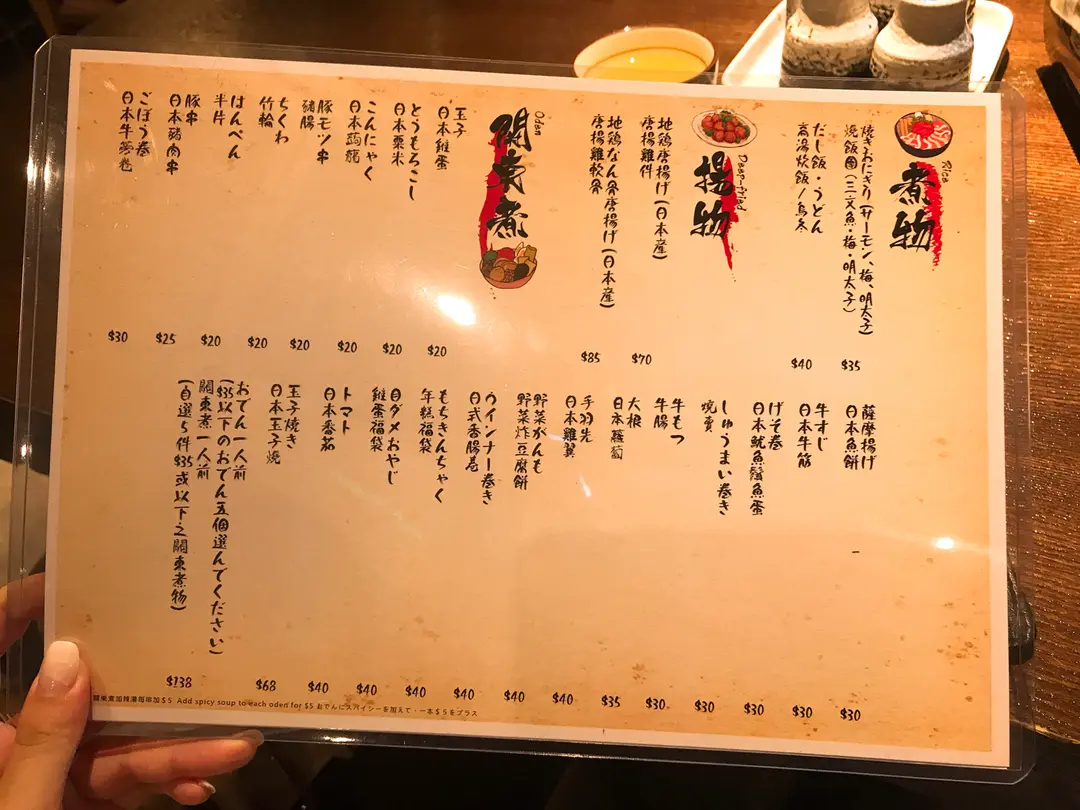 煮物
Rice
焼きおにぎり(サーモン、梅、明太子)
燒飯團(三文魚・梅・明太子)
$35
だし飯・うどん
高湯炊飯/烏冬
$40
揚物
Deep-fried
地鶏唐揚げ(日本産)
唐揚雞件
$70
地鶏なん骨唐揚げ(日本産)
唐揚雞軟骨
$85
関東煮
Oden
玉子
日本雞蛋
$20
とうもろこし
日本粟米
$20
こんにゃく
日本蒟蒻
$20
豚モツ串
豬腸
$20
ちくわ
竹輪
$20
はんぺん
半片
$20
豚串
日本豬肉串
$25
ごぼう巻
日本牛蒡卷
$30
薩摩揚げ
日本魚餅
$30
牛すじ
日本牛筋
$30
げそ巻
日本魷魚鬚魚蛋
$30
しゅうまい巻き
燒賣
$30
牛もつ
牛腸
$30
大根
日本蘿蔔
$35
手羽先
日本雞翼
$40
野菜がんも
野菜炸豆腐餅
$40
ウインナー巻き
日式香腸卷
$40
もちきんちゃく
年糕福袋
$40
日ダメおやじ
雞蛋福袋
$40
トマト
日本番茄
$40
玉子焼き
日本玉子燒
$68
おでん一人前
($35以下のおでん五個選んでください)
關東煮一人前
(自選5件$35或以下之關東煮物)
$138
關東煮加辣湯每串加$5 Add spicy soup to each oden for $5 おでんにスパイシーを加えて・一本$5をプラス